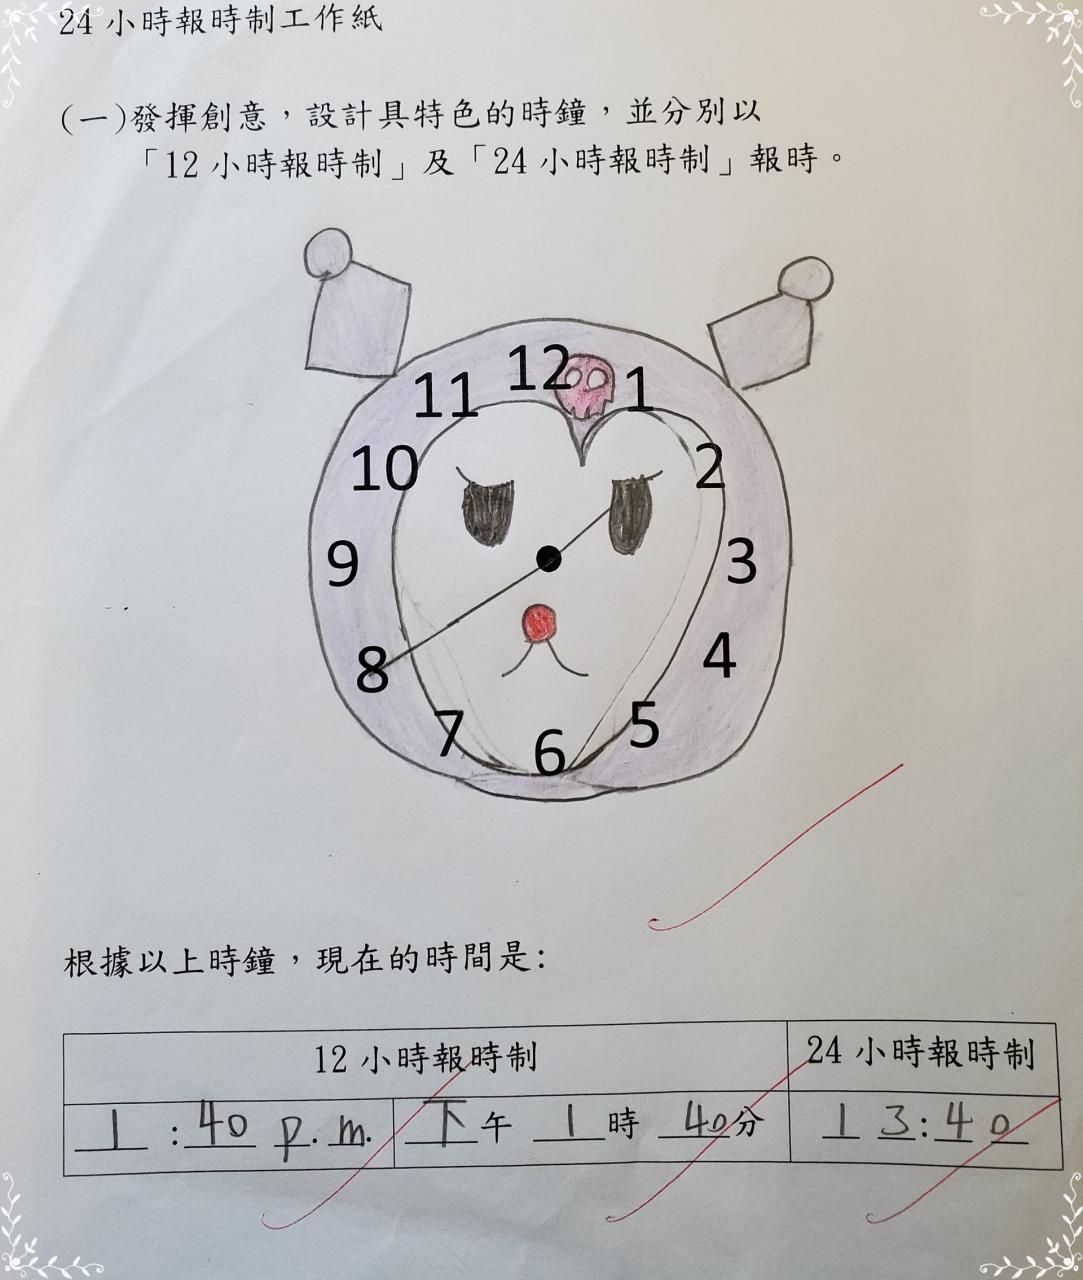 24 小時報時制工作紙
(一)發揮創意，設計具特色的時鐘，並分別以
「12 小時報時制」及「24 小時報時制」報時。
12
11
1
10
2
9
3
8
4
7
5
6
根據以上時鐘，現在的時間是:
12 小時報時制 24 小時報時制
1 : 40 p.m. 下午 1 時 40 分 13:40